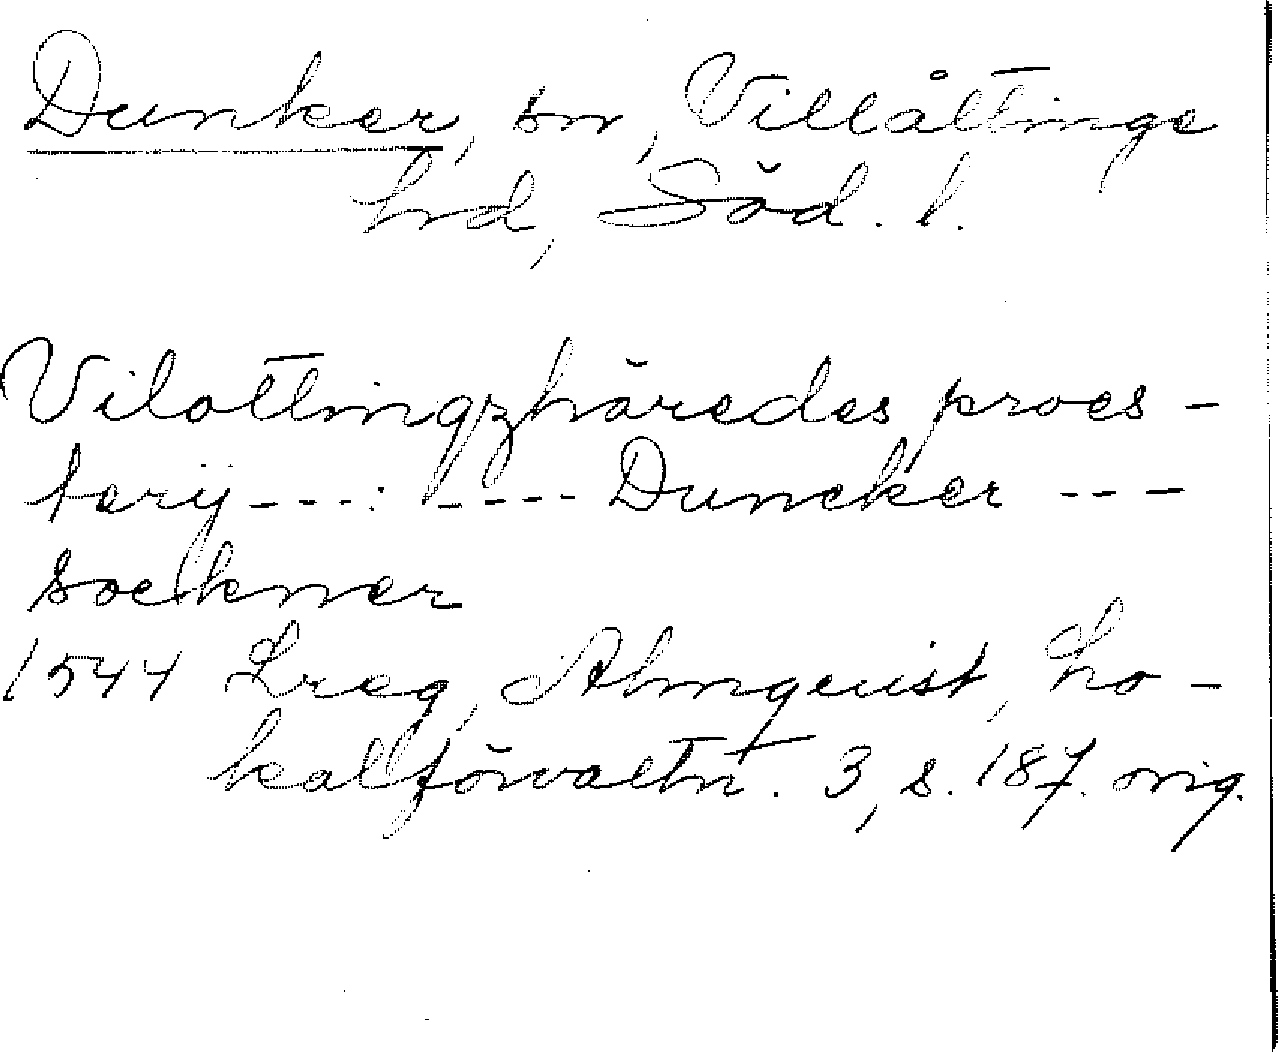 Dunker, sn, Villåttinge
hd, Söd. l.
Vilottingzhäredes proes-
terij---: ---- Duncker ---
sockner
1544 Lreg, Almquist, Lo-
kalförvaltn. 3, s. 187. orig.